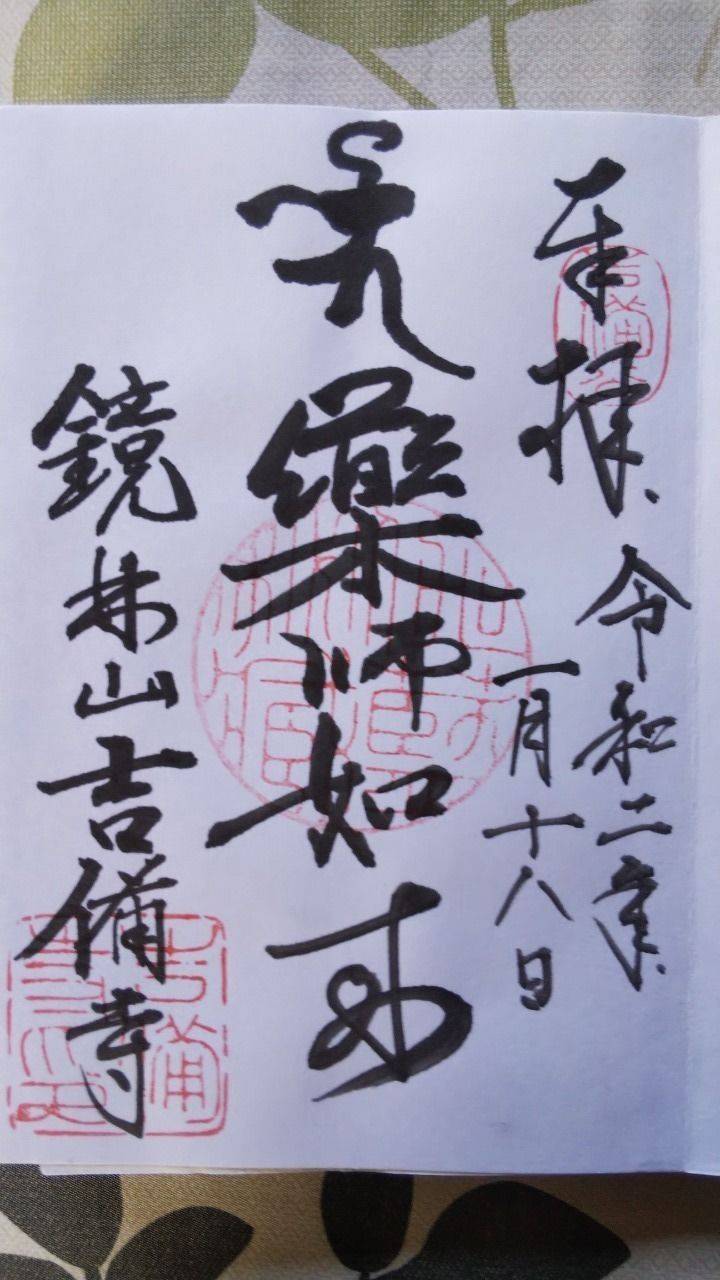 奉拝
令和二年
一月十八日
薬師如来
鏡林山吉備寺